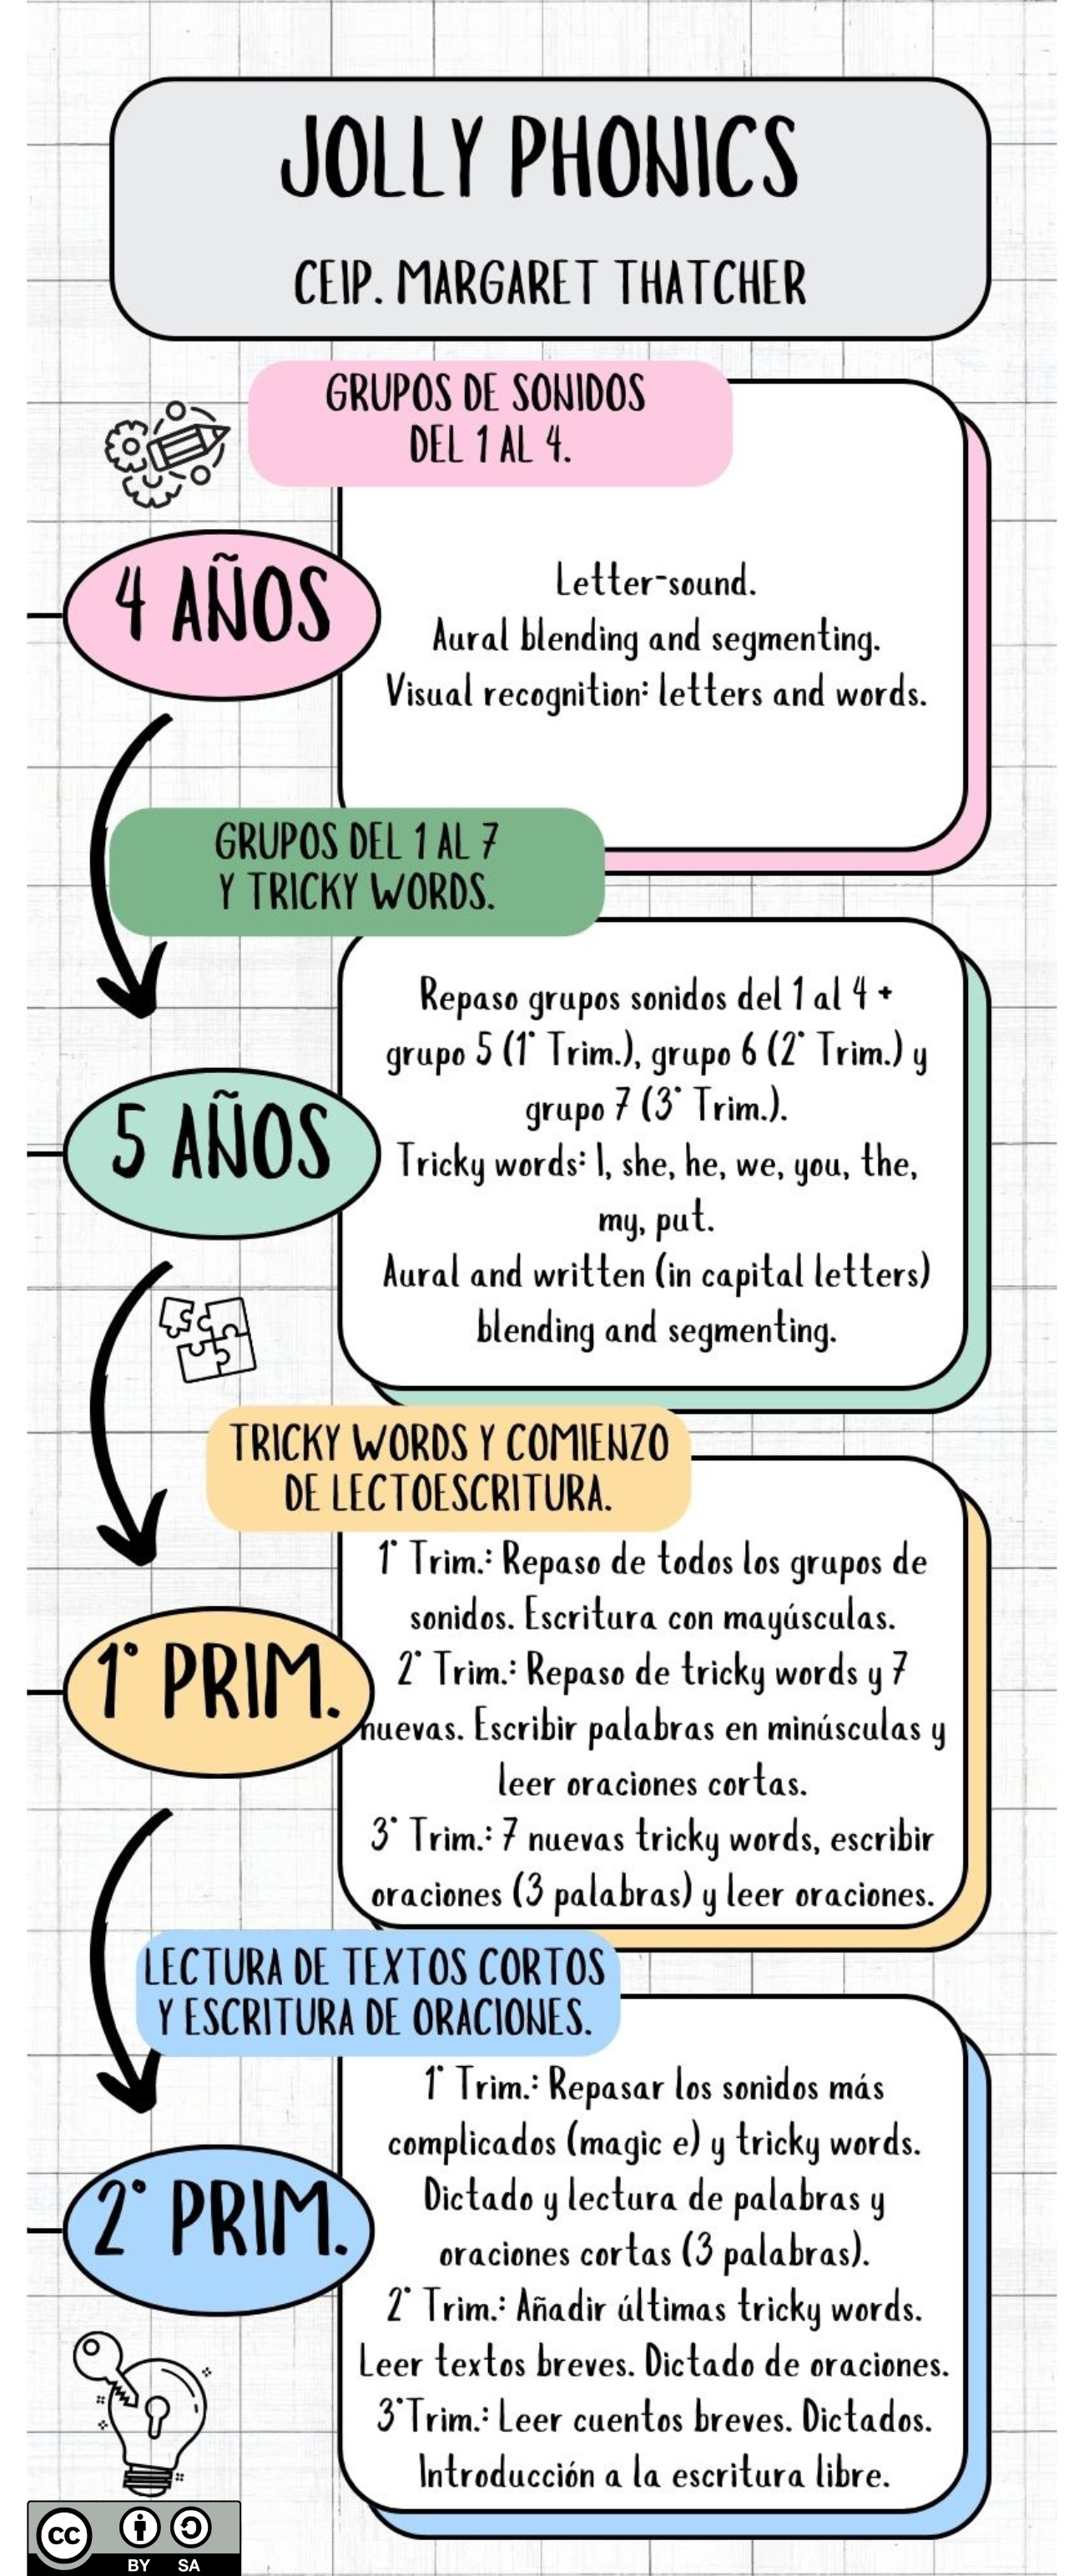 JOLLY PHONICS
CEIP. MARGARET THATCHER
GRUPOS DE SONIDOS
DEL 1 AL 4.
4 AÑOS
Letter-sound.
Aural blending and segmenting.
Visual recognition: letters and words.
GRUPOS DEL 1 AL 7
Y TRICKY WORDS.
5 AÑOS
Repaso grupos sonidos del 1 al 4 +
grupo 5 (1° Trim.), grupo 6 (2° Trim.) y
grupo 7 (3° Trim.).
Tricky words: I, she, he, we, you, the,
my, put.
Aural and written (in capital letters)
blending and segmenting.
TRICKY WORDS Y COMIENZO
DE LECTOESCRITURA.
1° PRIM.
1° Trim.: Repaso de todos los grupos de
sonidos. Escritura con mayúsculas.
2° Trim.: Repaso de tricky words y 7
nuevas. Escribir palabras en minúsculas y
leer oraciones cortas.
3° Trim.: 7 nuevas tricky words, escribir
oraciones (3 palabras) y leer oraciones.
LECTURA DE TEXTOS CORTOS
Y ESCRITURA DE ORACIONES.
2° PRIM.
1° Trim.: Repasar los sonidos más
complicados (magic e) y tricky words.
Dictado y lectura de palabras y
oraciones cortas (3 palabras).
2° Trim.: Añadir últimas tricky words.
Leer textos breves. Dictado de oraciones.
3°Trim.: Leer cuentos breves. Dictados.
Introducción a la escritura libre.
cc
BY SA